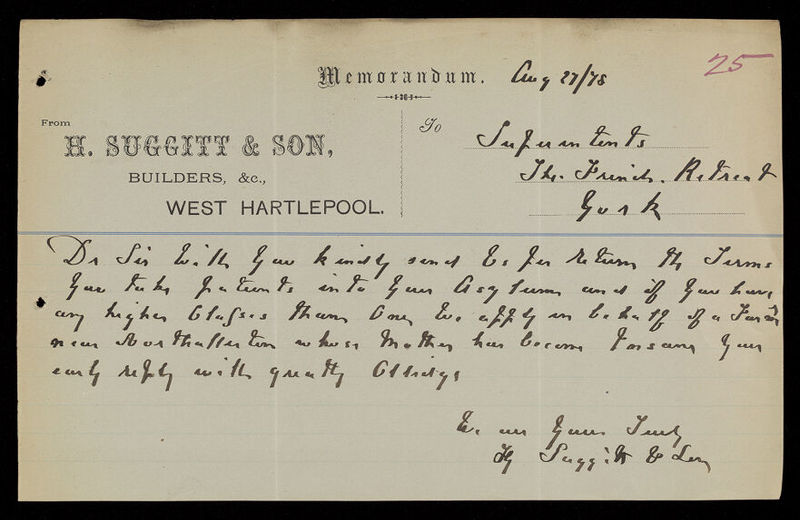 25
Memorandum. Aug 27/78
From
H. SUGGITT & SON,
BUILDERS, &c.,
WEST HARTLEPOOL.
To
Superintents
The Friends. Retreat
York
Dr Sir Will you kindly send us per return the Terms
you take patients into your Asylum and if you have
any higher Classes than one, We apply in behalf of a
near Northallerton whose Mother has become Insane your
early reply will greatly Oblidge
We are yours Truly
Hy Suggitt & Son